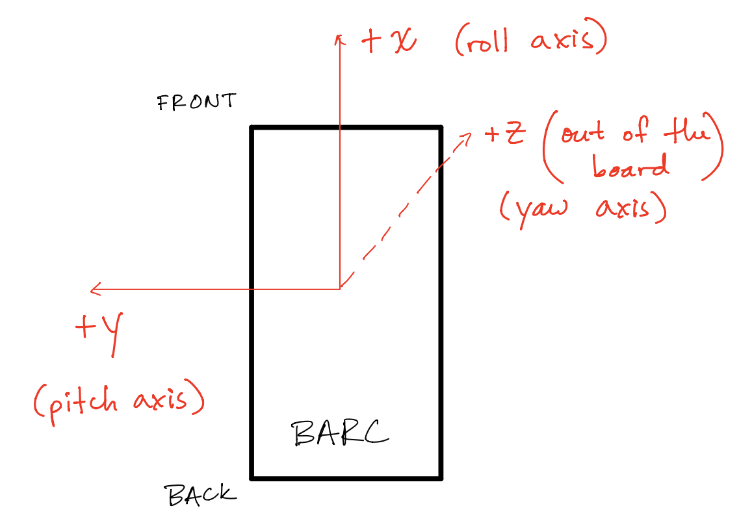 +x (roll axis)
FRONT
+z (out of the
board)
(yaw axis)
+y
(pitch axis)
BARC
BACK